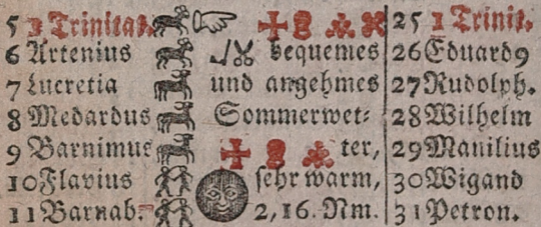 5 1 Trinitat. 25 1 Trinit.
6 Artenius bequemes 26 Eduard9
7 Lucretia und angehmes 27 Rudolph.
8 Medardus Sommerwet⸗ 28 Wilhelm
9 Barnimus ter, 29 Manilius
10 Flavius sehr warm, 30 Wigand
11 Barnab⸗ 2,16. Nm. 31 Petron.